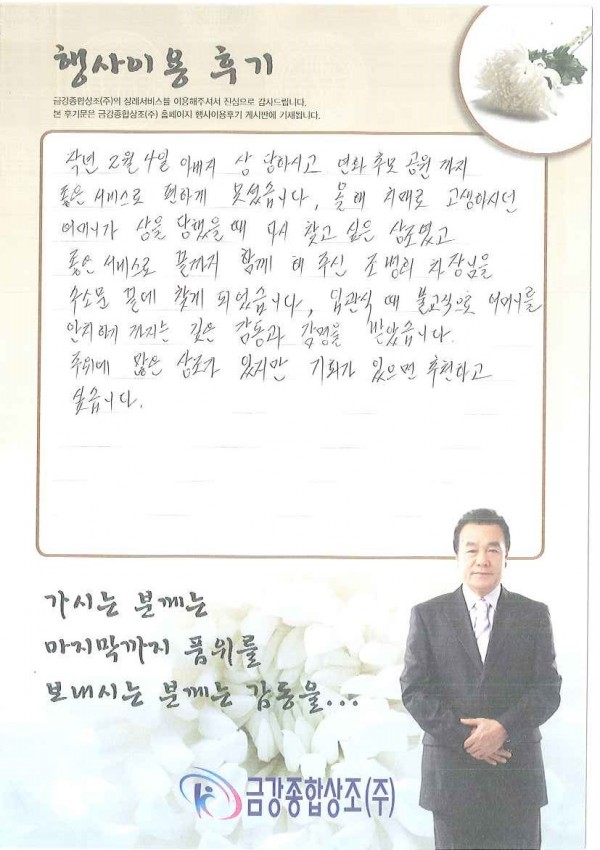 행사이용 후기
금강종합상조(주)의 장례서비스를 이용해주셔서 진심으로 감사드립니다.
본 후기문은 금강종합상조(주) 홈페이지 행사이용후기 게시판에 기재됩니다.
작년 2월 4일 아버지 상 당하시고 연화 추모 공원 까지
좋은 서비스로 편하게 모셨습니다, 올해 치매로 고생하시던
어머니가 상을 당했을때 다시 찾고 싶은 상조였고
좋은 서비스로 끝까지 함께 해 주신 조병희 차장님을
수소문 끝에 찾게 되었습니다, 입관식 때 불교식으로 어머니를
안치하게 까지는 깊은 감동과 감명을 받았습니다.
주위에 많은 상조가 있지만 기회가 있으면 추천하고
싶습니다.
가시는 분께는
마지막까지 품위를
보내시는 분께는 감동을...
금강종합상조(주)